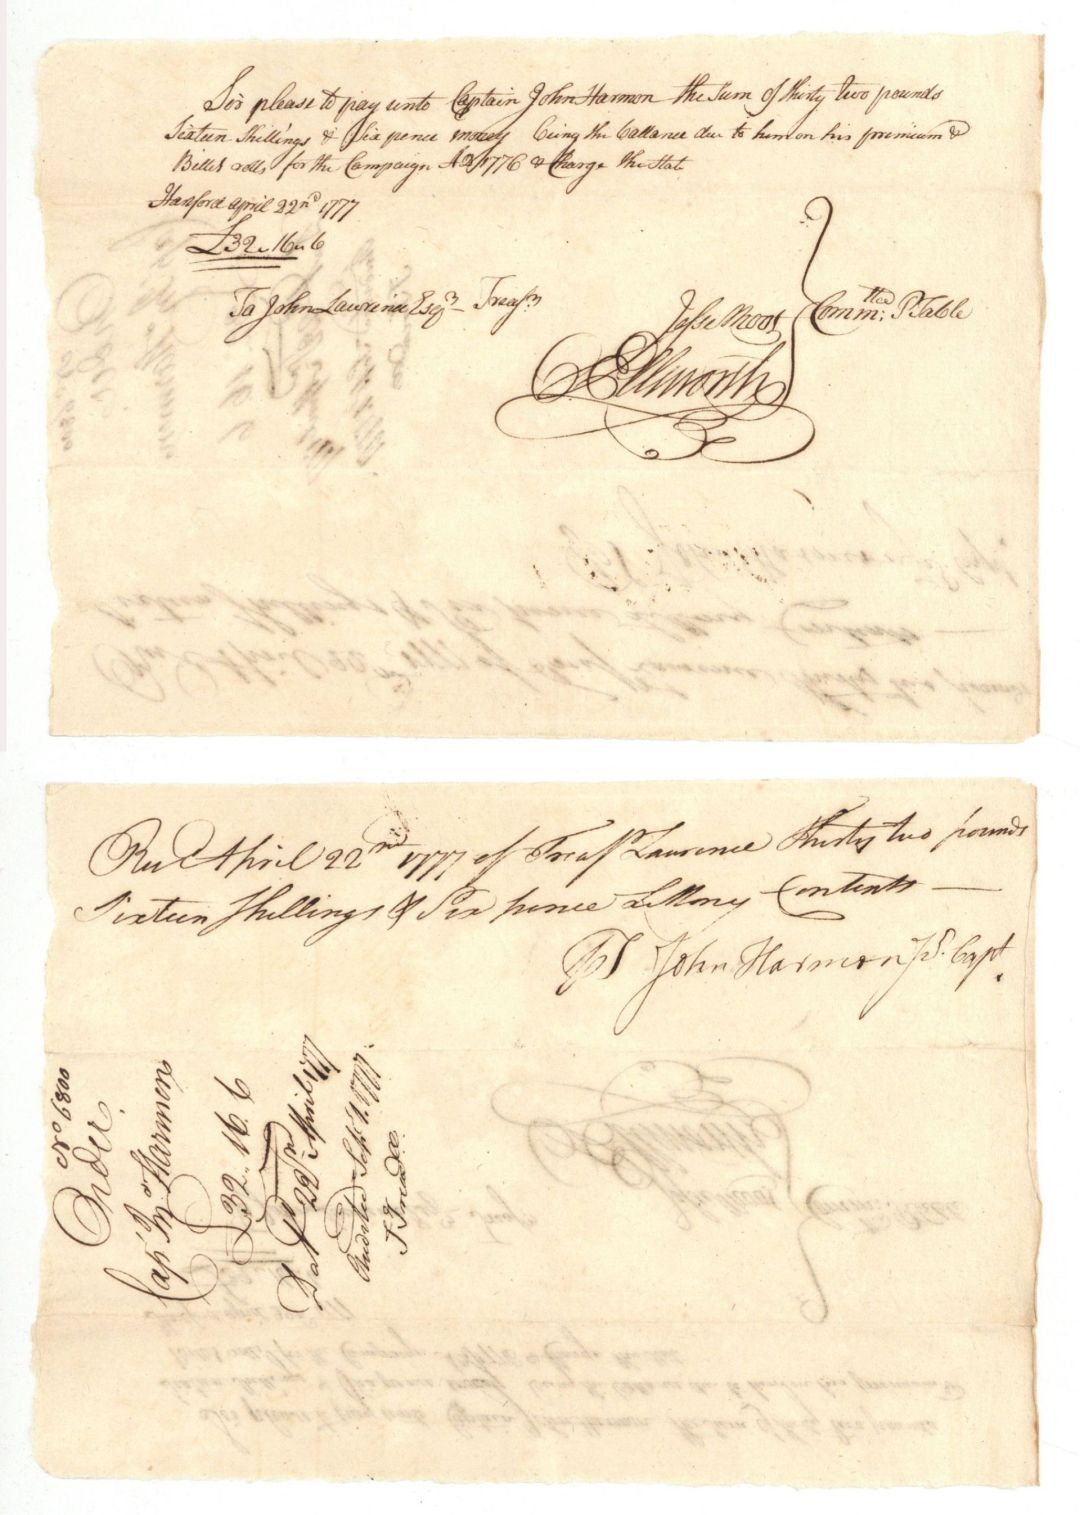 Sir please to pay unto Captain John Harmon the Sum of thirty two pounds
Sixteen Shillings & Six pence money being the ballance due to him on his premium &
Billet rolls for the Campaign AD 1776 & Charge the State
Harford april 22nd 1777
£32 " 16 " 6
To John Lawrence Esqr Treasr
Jesse Root
O Ellsworth
Commttee P Table
Recd April 22nd 1777 of Treasr Lawrence Thirty two pounds
Sixteen Shillings & Six pence LMony Contents
John Harmon Jr. Capt
No 6800
Order
Capt Jno Harmens
£32.16.6
Datd 22nd April 1777
Audited Sept 1. 1777.